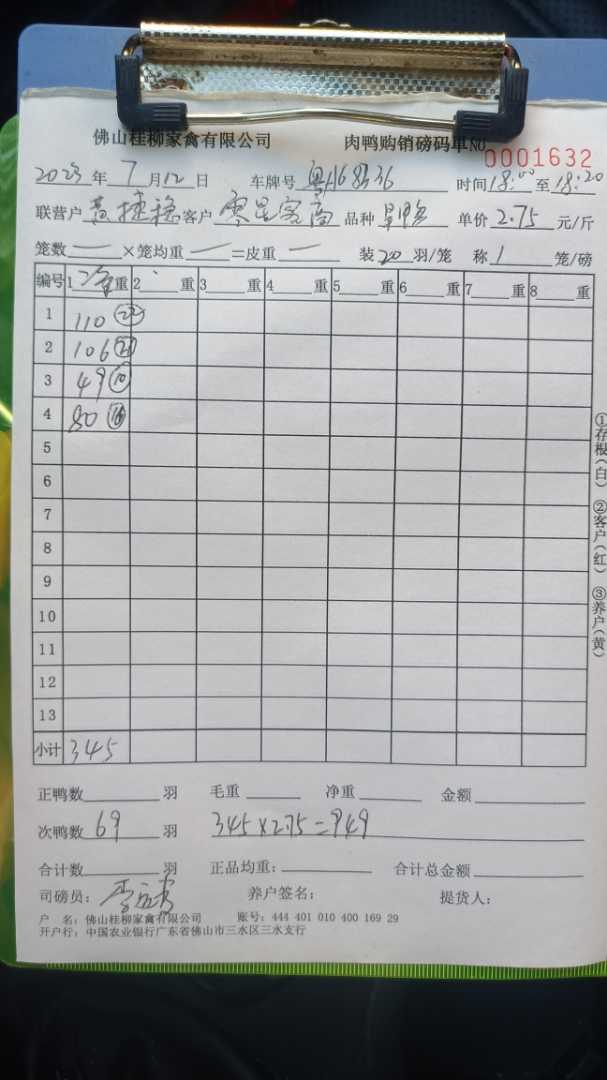 佛山桂柳家禽有限公司 肉鸭购销磅码单NO 0001632
2023年7月12日 车牌号 时间18:00至18:20
联营户 黄捷稳 客户 品种 单价2.75元/斤
笼数 — ×笼均重 — =皮重 — 装20羽/笼 称1笼/磅
编号 1 净重 2 重 3 重 4 重 5 重 6 重 7 重 8 重
1 110 22
2 106 21
3 49 10
4 80 16
5
6
7
8
9
10
11
12
13
小计 345
正鸭数 羽 毛重 净重 金额
次鸭数 69 羽 345×2.75=949
合计数 羽 正品均重: 合计总金额
司磅员: 养户签名: 提货人:
户 名: 佛山桂柳家禽有限公司 账号: 444 401 010 400 169 29
开户行: 中国农业银行广东省佛山市三水区三水支行
①存根(白) ②客户(红) ③养户(黄)